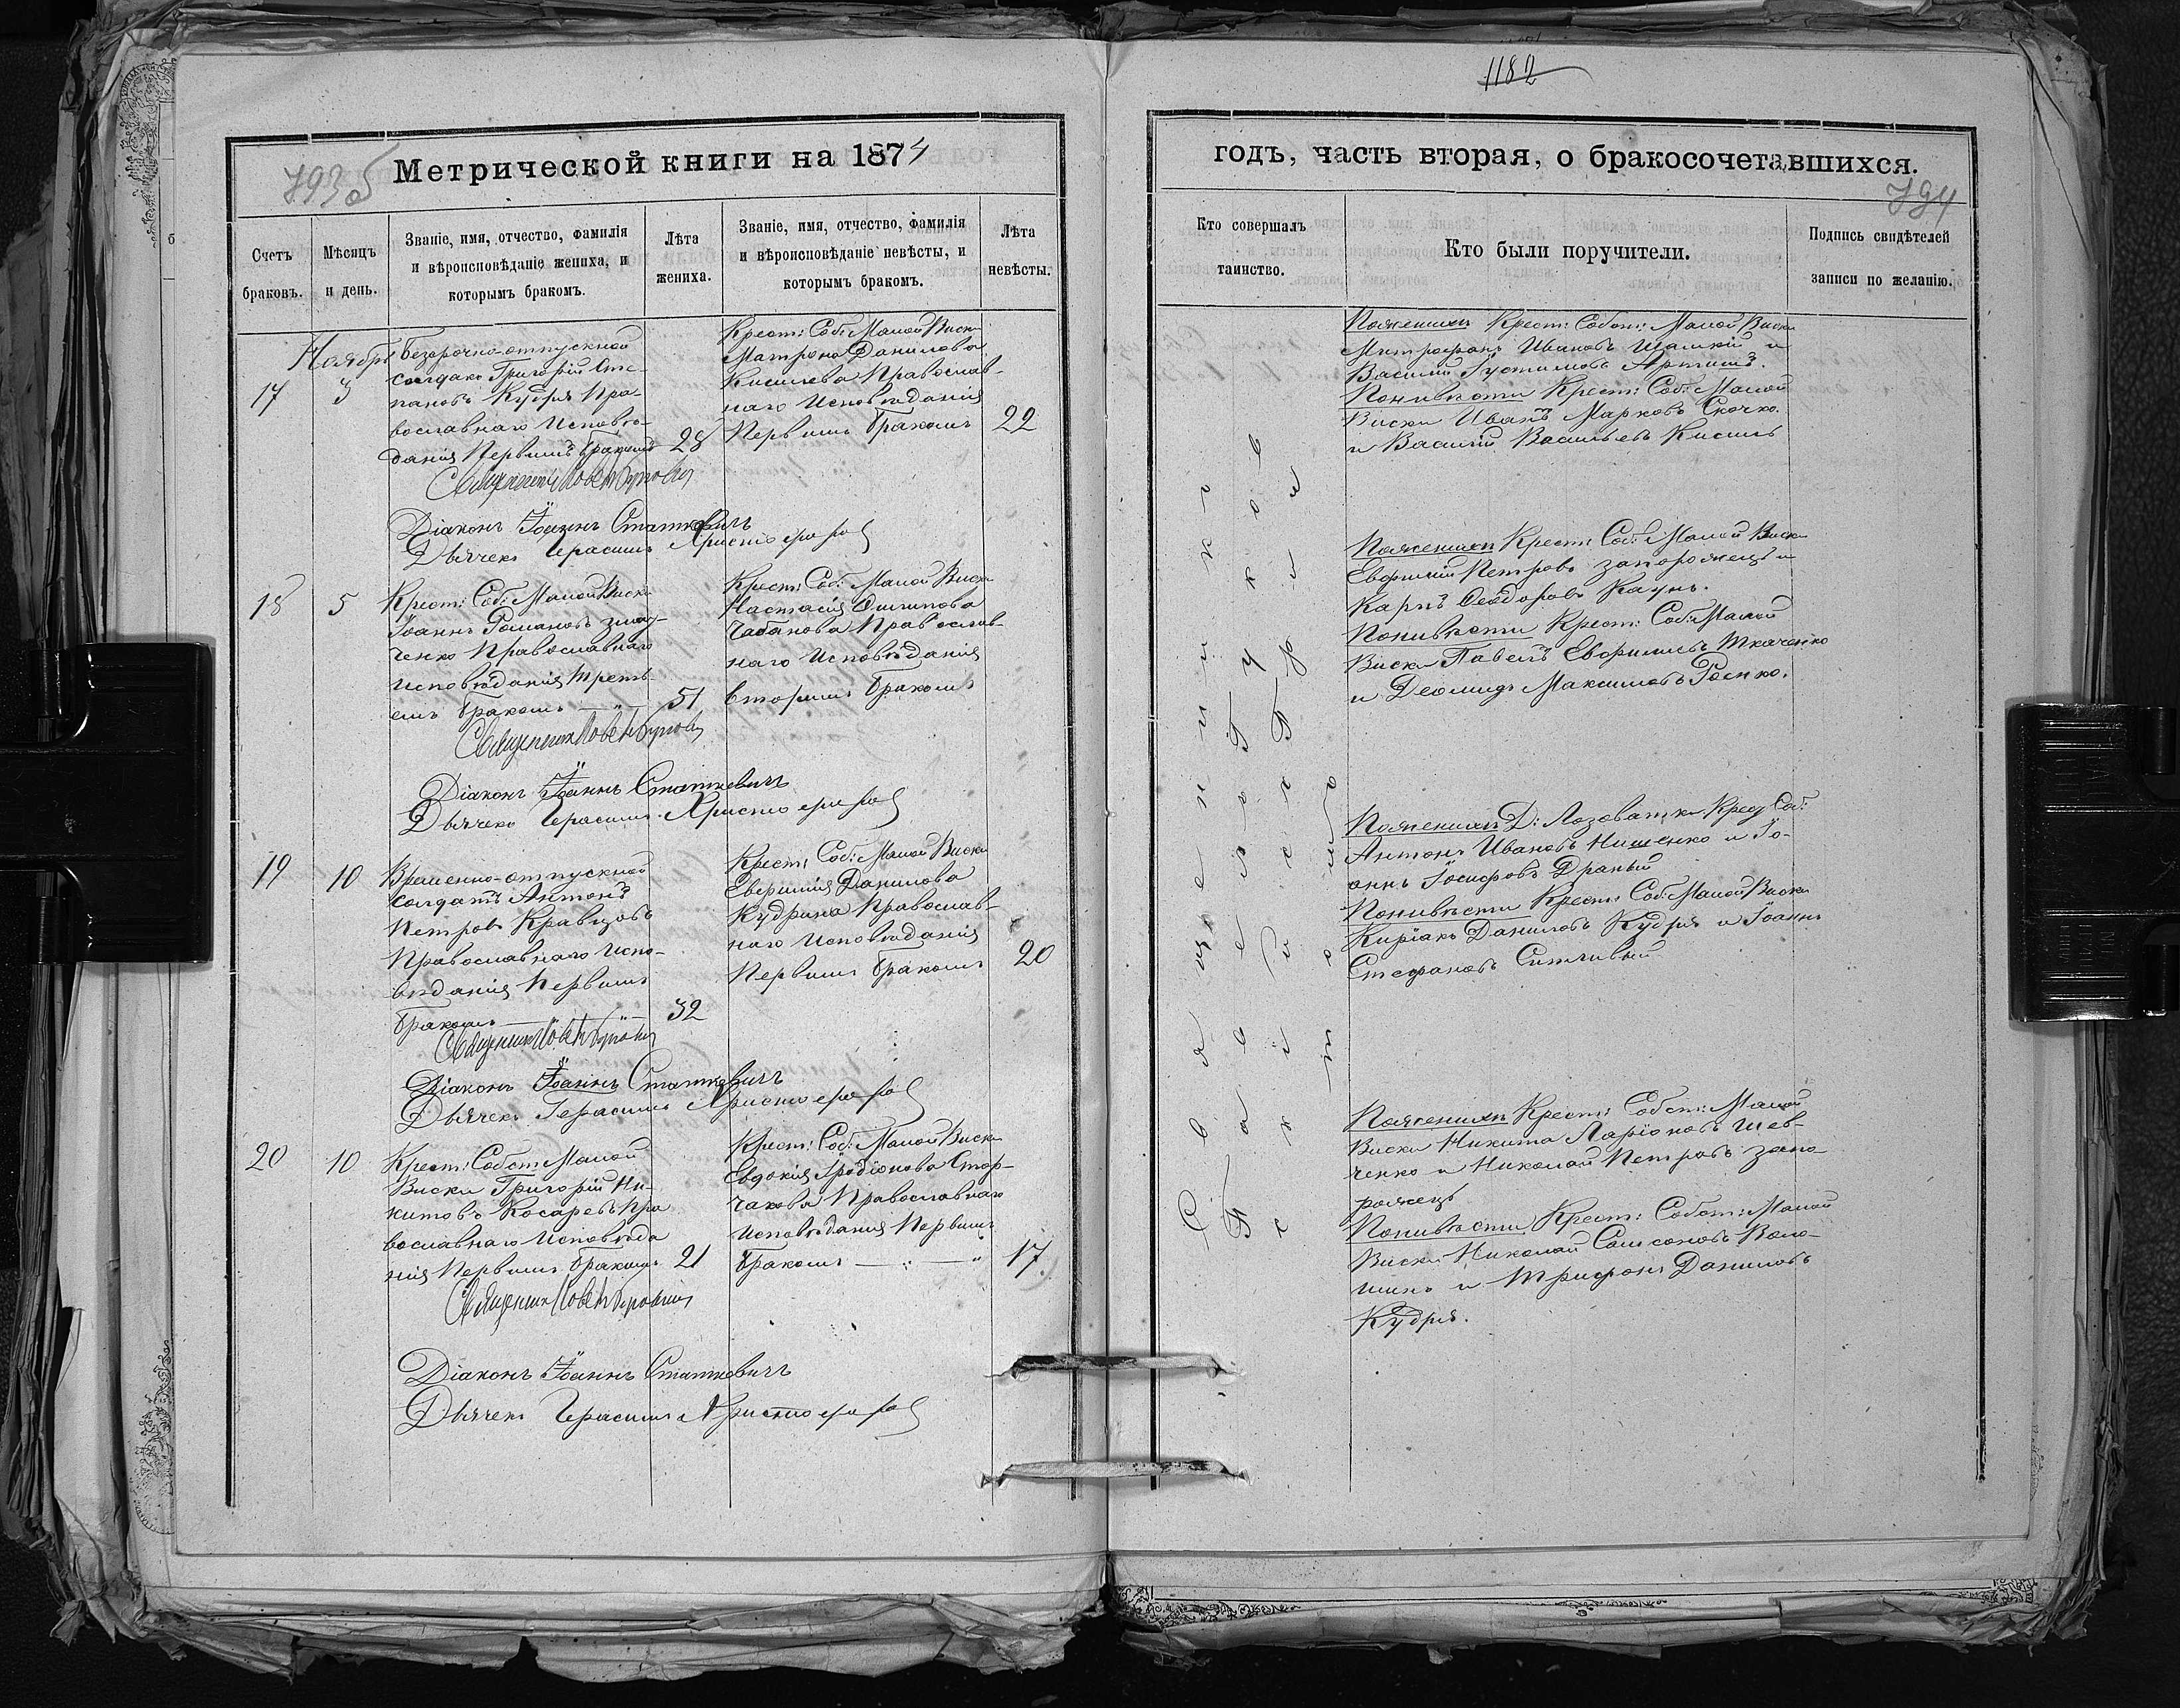 1182
793 об
Метрической книги на 1874
годъ, часть вторая, о бракосочетавшихся.
794
Счетъ браковъ.
Мѣсяцъ и день.
Званіе, имя, отчество, фамилія и вѣроисповѣданіе жениха, и которымъ бракомъ.
Лѣта жениха.
Званіе, имя, отчество, фамилія и вѣроисповѣданіе невѣсты, и которымъ бракомъ.
Лѣта невѣсты.
Кто совершалъ таинство.
Кто были поручители.
Подпись свидѣтелей записи по желанію.
Ноябрь
17
3
Безсрочно-отпускной
солдатъ Григорій Сте-
пановъ Кудря Пра-
вославнаго Исповѣ-
данія Первымъ бракомъ
28
Крест: Соб: Малой Виски
Матрона Данилова
Кисилева Православ-
наго Исповѣданія
Первымъ бракомъ
22
Священникъ
Діаконъ Іоаннъ Статкевичъ
Дьячекъ Герасимъ Христофоров
Поженихѣ Крест: Собст: Малой Виски
Митрофанъ Ивановъ и
Василій Густимовъ
Поневѣсти Крест: Соб: Малой
Виски Иванъ Марковъ Скочко
и Василій Васильевъ Кисиль
18
5
Крест: Соб: Малой Виски
Іоаннъ Романовъ
ченко Православнаго
Исповѣданія Треть-
имъ бракомъ
51
Крест: Соб: Малой Виски
Настасія
Чабанова Православ-
наго Исповѣданія
вторымъ бракомъ
Священникъ
Діаконъ Іоаннъ Статкевичъ
Дьячекъ Герасимъ Христофоров
Поженихѣ Крест: Соб: Малой Виски
Евфимій Петровъ запорожецъ и
Карпъ Феодоровъ Каунъ.
Поневѣсти Крест: Соб: Малой
Виски Павелъ Евфимовъ Ткаченко
и Деомидъ Максимовъ
19
10
Временно-отпускной
солдатъ Антонъ
Петровъ Кравцовъ
Православнаго Испо-
вѣданія Первымъ
бракомъ
32
Крест: Соб: Малой Виски
Евфимія Данилова
Кудрина Православ-
наго Исповѣданія
Первымъ бракомъ
20
Священникъ
Діаконъ Іоаннъ Статкевичъ
Дьячекъ Герасимъ Христофоров
Поженихѣ Д: Лозоватки Крест Соб:
Антонъ Ивановъ Нищенко и Іо-
аннъ Іосифовъ Драный
Поневѣсти Крест: Соб: Малой Виски
Киріакъ Даниловъ Кудря и Іоаннъ
Стефановъ Ситливый
20
10
Крест: Собст Малой
Виски Григорій Ни-
китовъ Косаревъ Пра
вославнаго Исповѣда
нія Первымъ бракомъ
21
Крест: Соб: Малой Виски
Евдокія Іродіонова Стор-
чакова Православнаго
Исповѣданія Первымъ
бракомъ
17
Священникъ
Діаконъ Іоаннъ Статкевичъ
Дьячекъ Герасимъ Христофоров
Поженихѣ Крест: Собст: Малой
Виски Никита Ларіоновъ Шев-
ченко и Николай Петровъ запо-
рожецъ
Поневѣсти Крест: Собст: Малой
Виски Николай Самсоновъ Воло-
шинъ и Трифонъ Даниловъ
Кудря.
Священникъ